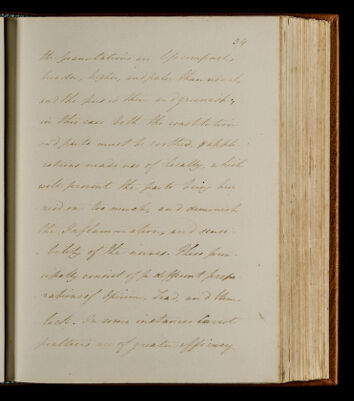 34
the granulations are less compact,
broader, higher, and paler than usual,
and the pus is thin and greenish,
in this case both the constitution
and parts must be soothed, & appli
cations made use of locally, which
will prevent the parts being hur
ried on too much, and diminish
the Inflammation, and sensi
bility of the nerves. These prin
cipally consist of different prepa
rations of Opium, Lead, and Hem
lock. In some instances Carrot
poultices are of greater efficacy